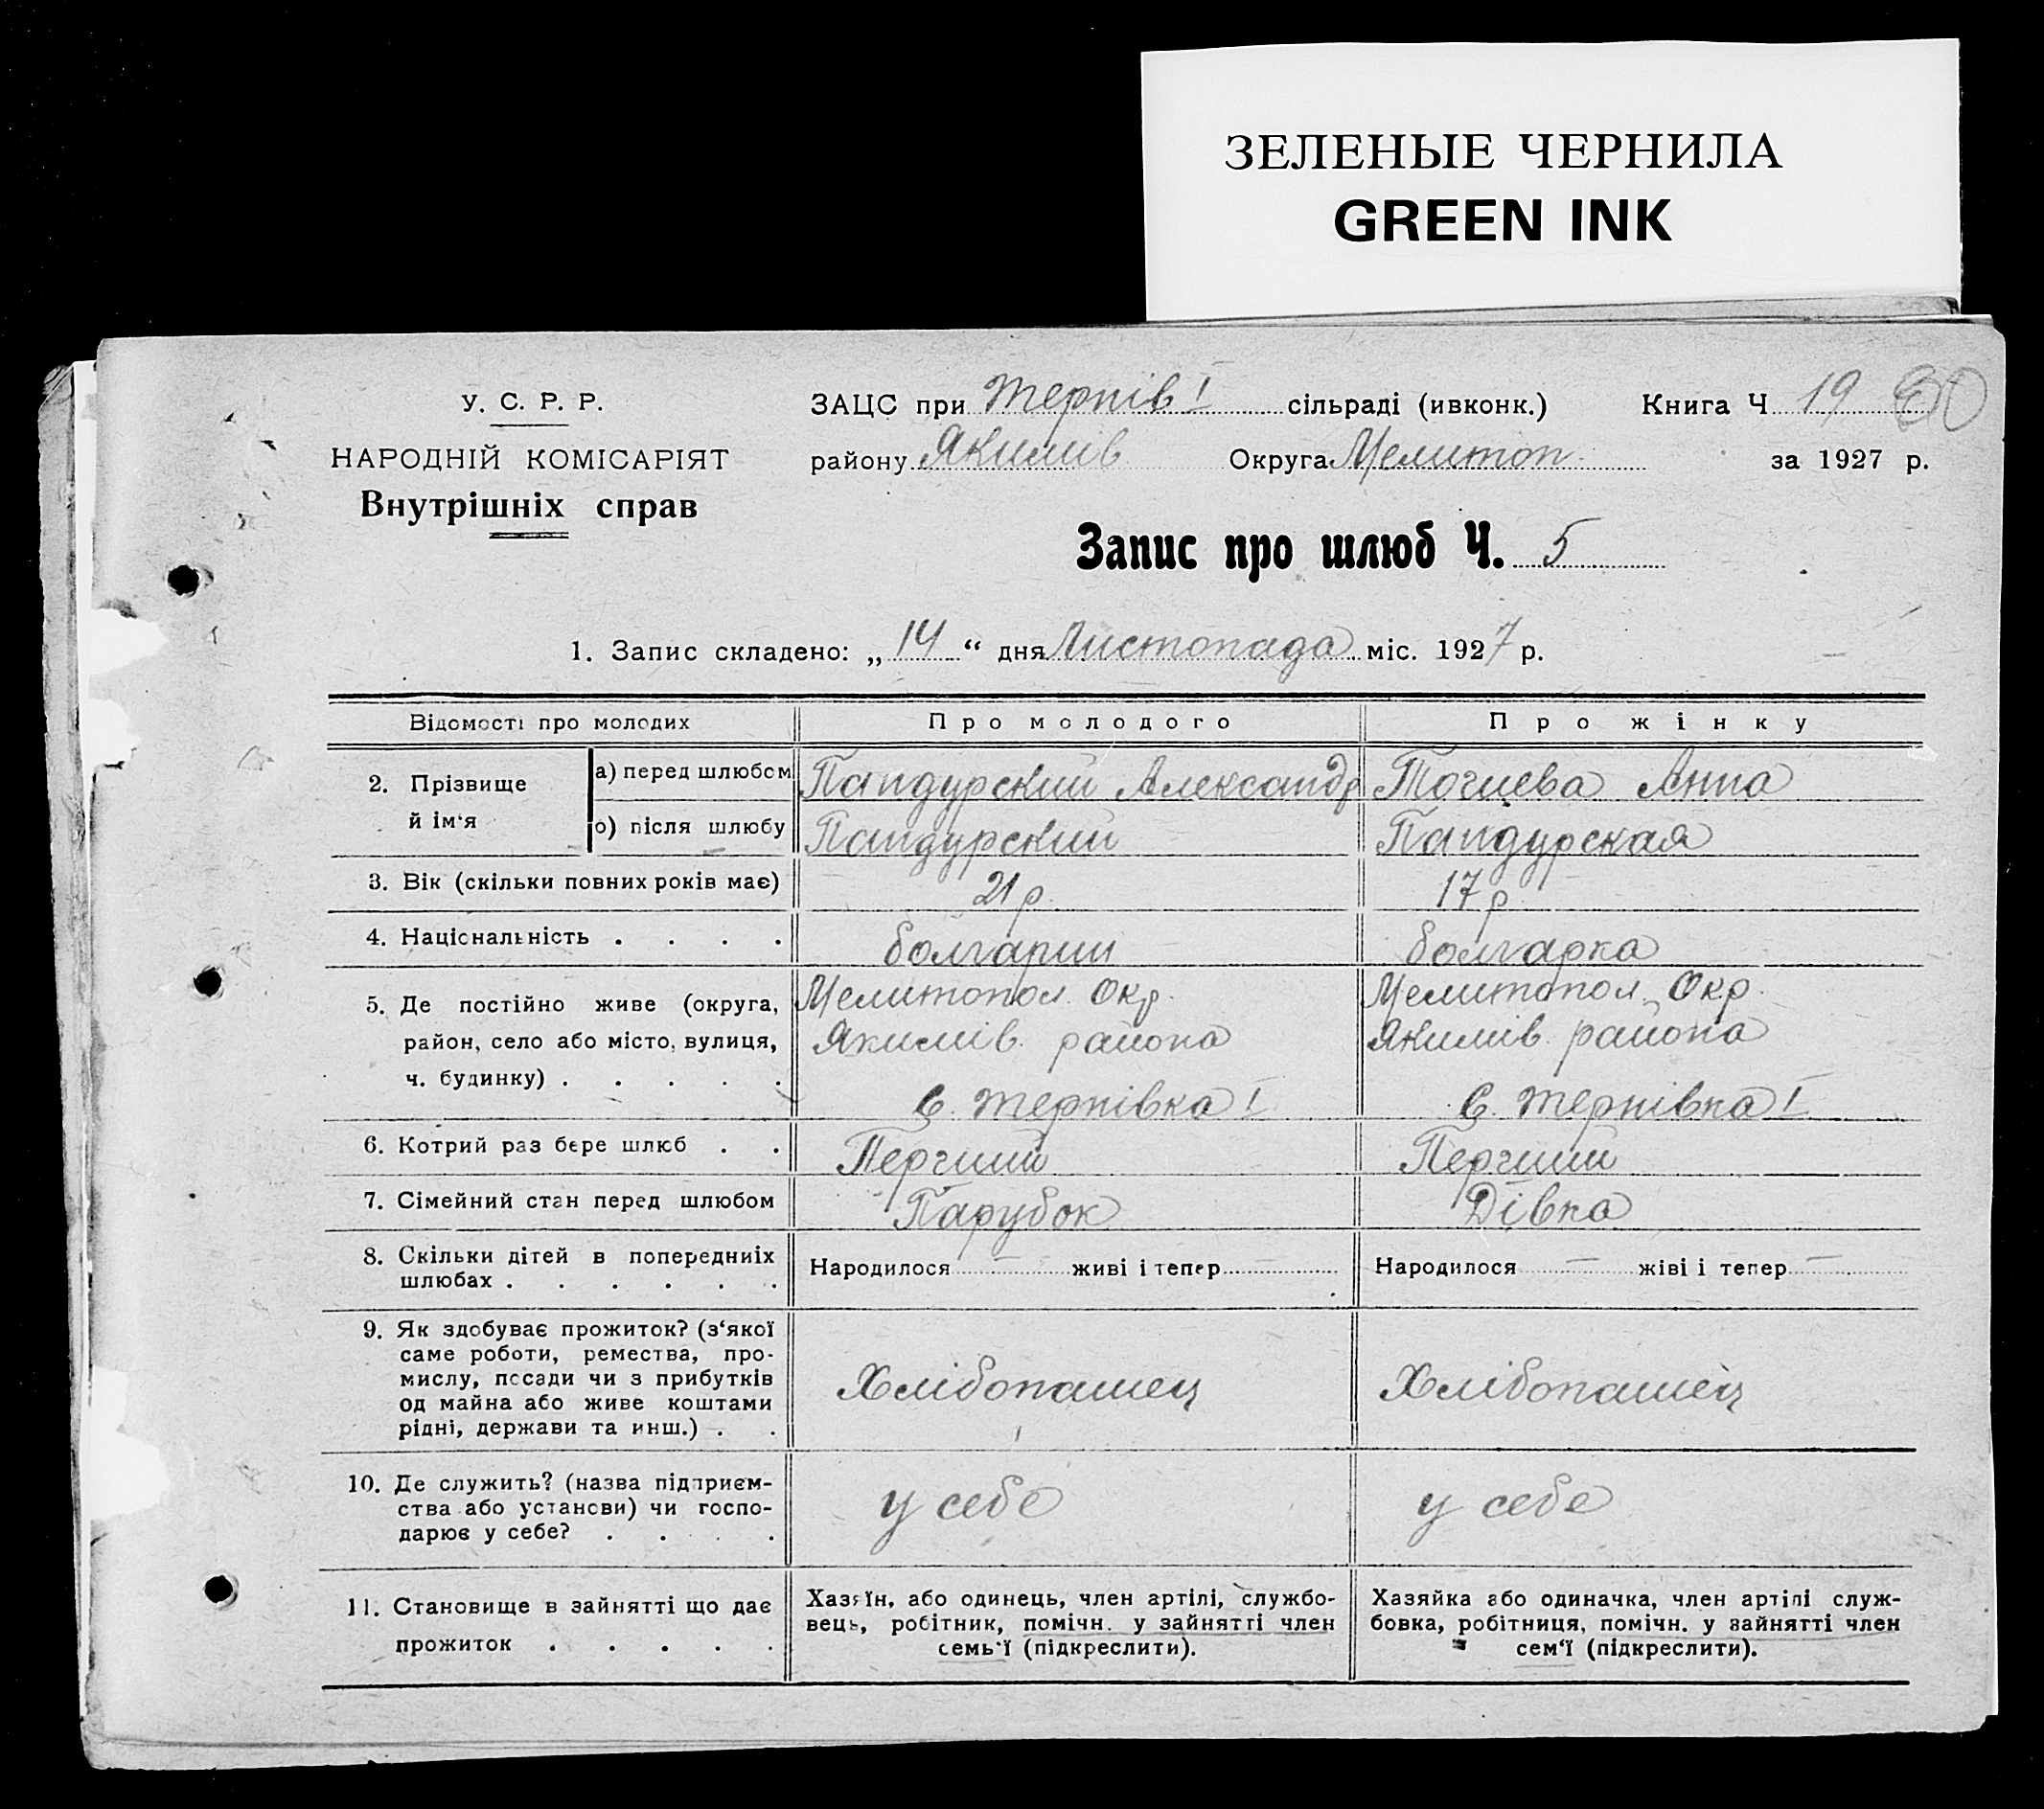 ЗЕЛЕНЫЕ ЧЕРНИЛА
GREEN INK
У. С. Р. Р.
НАРОДНІЙ КОМІСАРІЯТ
Внутрішніх справ
ЗАЦС при Тернів I сільраді (ивконк.) Книга Ч 19
району Якимів Округа Мелитоп за 1927 р.
Запис про шлюб Ч. 5
1. Запис складено: „14“ дня Листопада міс. 1927 р.
Відомості про молодих Про молодого Про жінку
2. Прізвище й ім‘я
а) перед шлюбом Пандурский Александр Точиева Анна
о) після шлюбу Пандурский Пандурская
3. Вік (скільки повних років має) 21 р. 17 р
4. Національність . . . . болгарин болгарка
5. Де постійно живе (округа, район, село або місто, вулиця, ч. будинку) . . . . .
Мелитопол. Окр. Мелитопол. Окр.
Якимів. района Якимів. района
с. Тернівка I с. Тернівка I
6. Котрий раз бере шлюб . . Перчший Перчший
7. Сімейний стан перед шлюбом Парубок Дівка
8. Скільки дітей в попередниіх шлюбах . . . . . .
Народилося — живі і тепер — Народилося — жіві і тепер —
9. Як здобуває прожиток? (з‘якої
саме роботи, ремества, про-
мислу, посади чи з прибутків
од майна або живе коштами
рідні, держави та инш.) . .
Хлібопашец Хлібопашец
10. Де служить? (назва підприєм-
ства або установи) чи госпо-
дарює у себе? . . . .
у себе у себе
11. Становище в зайнятті що дає
прожиток . . . . .
Хазяїн, або одинець, член артілі, службо-
вець, робітник, помічн. у зайнятті член
семь‘ї (підкреслити).
Хазяйка або одиначка, член артілі служ-
бовка, робітниця, помічн. у зайнятті член
сем‘ї (підкреслити).